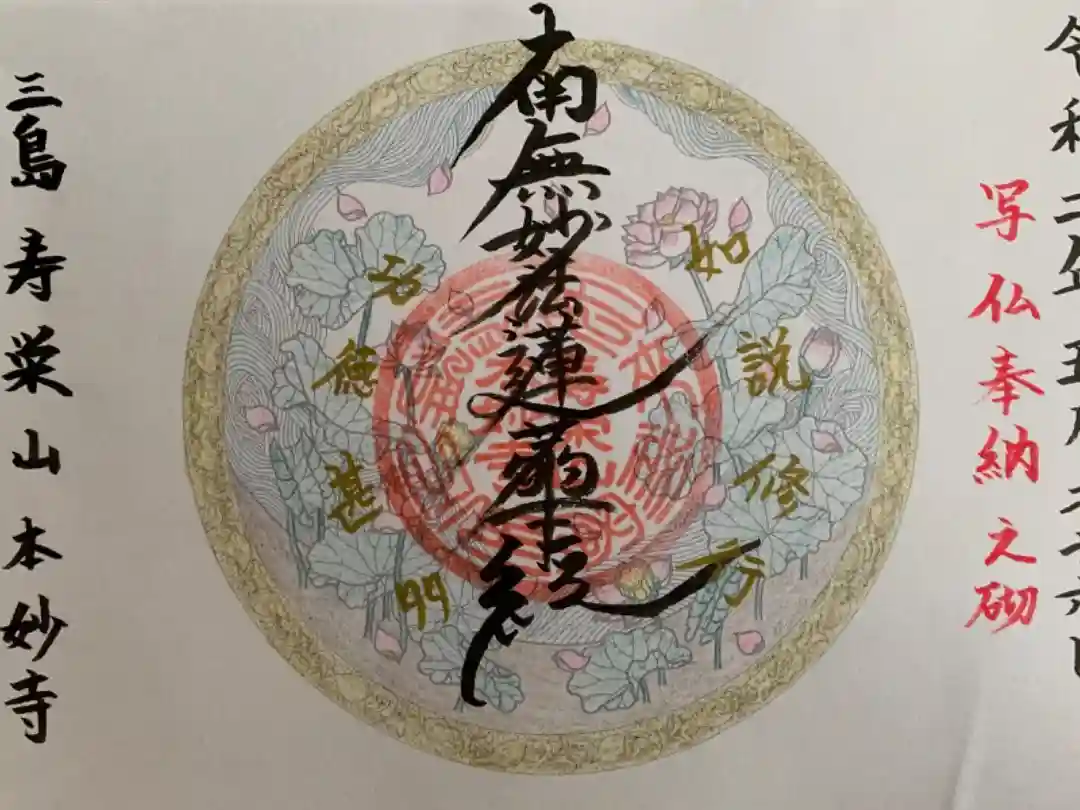 令和二年五月二十六日
写仏奉納之砌
如説修行
南無妙法蓮華経
功徳甚多
三島寿栄山本妙寺